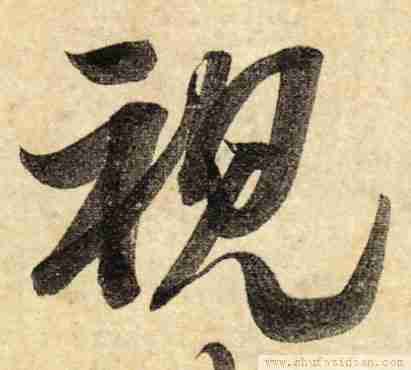 視
www.shufazidian.com